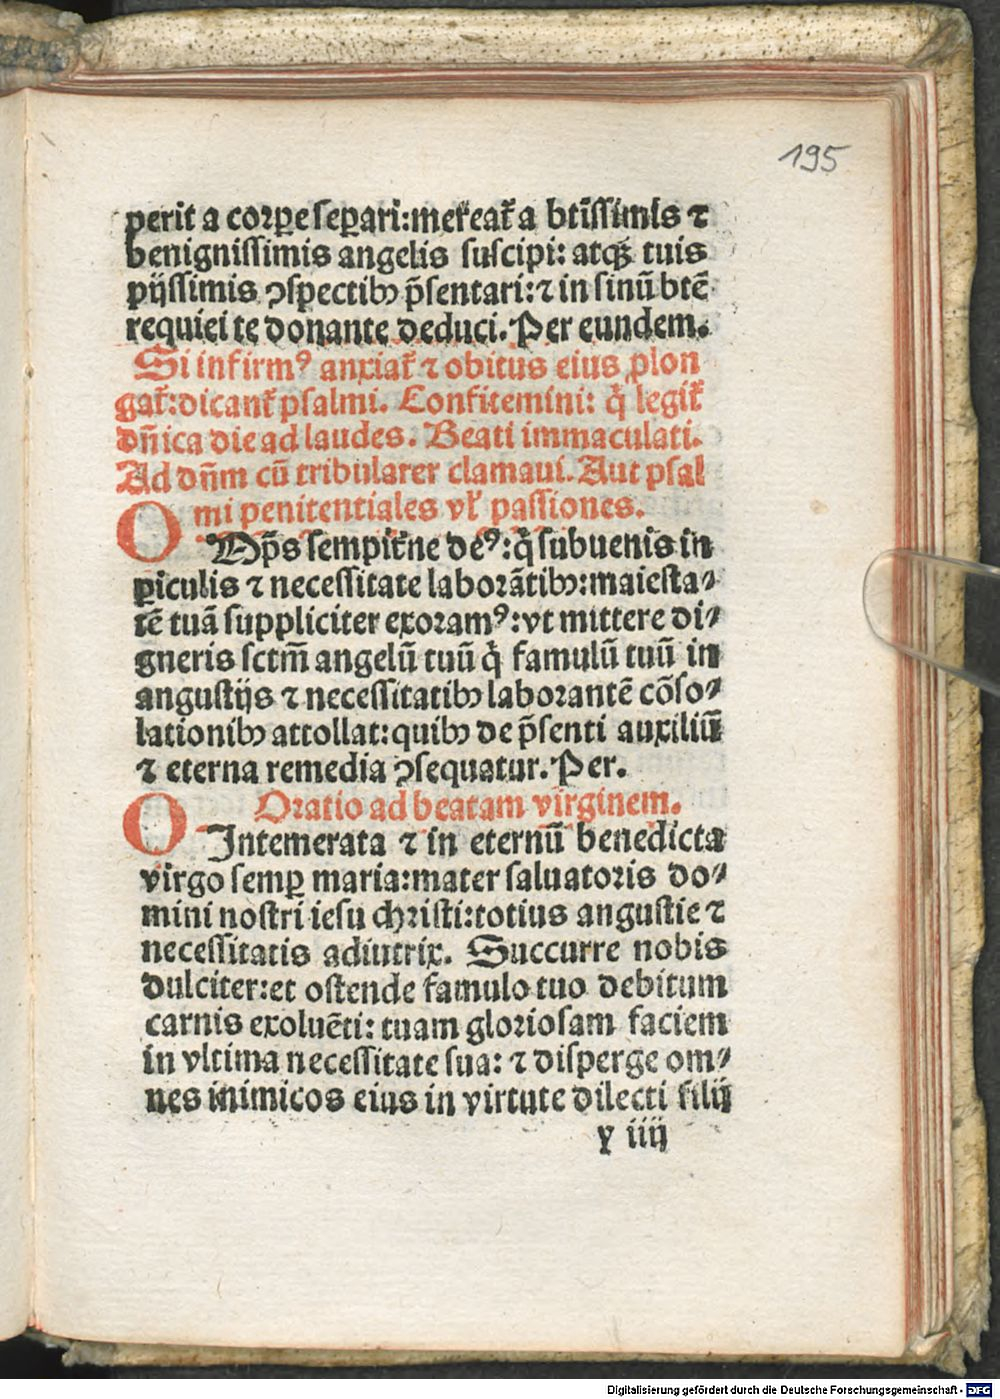 195
perit a corꝑe seꝑari:mereat᷑ a btissimis ⁊
benignissimis angelis suscipi: atqꝫ tuis
pijssimis ↄspectibꝫ p̃sentari:⁊ in sinũ btẽ
requiei te donante deduci. Per eundem.
Si infirmꝰ anxiat᷑ ⁊ obitus eius ꝓlon
gat᷑:dicant᷑ psalmi. Confitemini: q̇ legit᷑
dñica die ad laudes. Beati immaculati.
Ad dñm cũ tribularer clamaui. Aut psal
mi penitentiales vl᷑ passiones.
OMp̃s sempit᷑ne deꝰ:q̇ subuenis in
ꝑiculis ⁊ necessitate laborãtibꝫ:maiesta⸗
tẽ tuã suppliciter exoramꝰ:vt mittere di⸗
gneris sctm̃ angelũ tuũ q̇ famulũ tuũ in
angustijs ⁊ necessitatibꝫ laborantẽ cõso⸗
lationibꝫ attollat:quibꝫ de p̃senti auxiliũ
⁊ eterna remedia ↄsequatur. Per.
Oratio ad beatam virginem.
O Intemerata ⁊ in eternũ benedicta
virgo semꝑ maria:mater saluatoris do⸗
mini nostri iesu christi:totius angustie ⁊
necessitatis adiutrix. Succurre nobis
dulciter:et ostende famulo tuo debitum
carnis exoluẽti: tuam gloriosam faciem
in vltima necessitate sua: ⁊ disperge om⸗
nes inimicos eius in virtute dilecti filij
y iiij
Digitalisierung gefördert durch die Deutsche Forschungsgemeinschaft - DFG